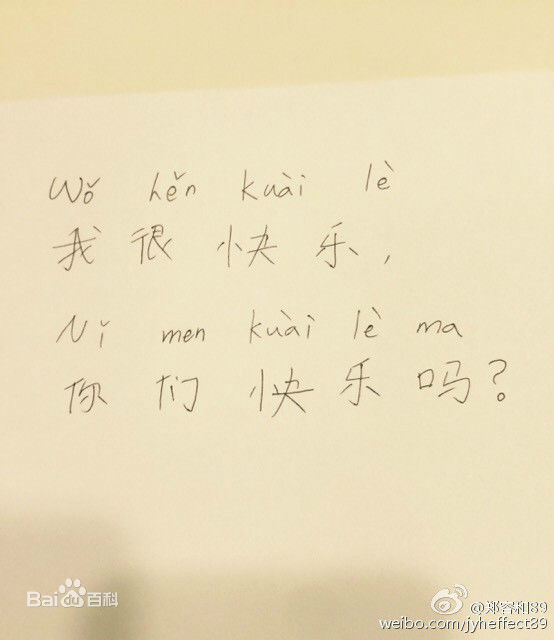 Wǒ hěn kuài lè
我很快乐,
Nǐ men kuài lè ma
你们快乐吗?
Bai百科
@郑容和89
weibo.com/jyheffect89